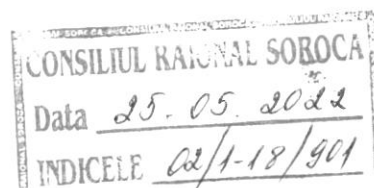 CONSILIUL RAIONAL SOROCA
Data 25. 05. 2022
INDICELE 02/1-18/901